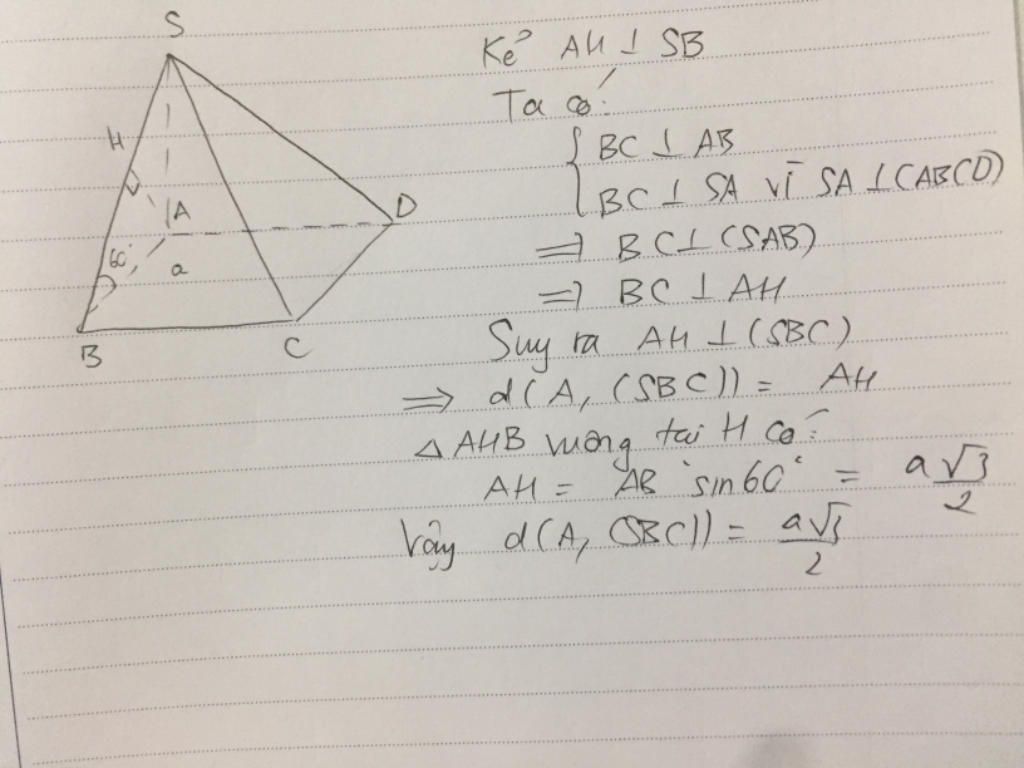 S
H
A
D
60°
a
B
C
Kẻ AH ⊥ SB
Ta có:
BC ⊥ AB
BC ⊥ SA vì SA ⊥ (ABCD)
=> BC ⊥ (SAB)
=> BC ⊥ AH
Suy ra AH ⊥ (SBC)
=> d(A, (SBC)) = AH
△ AHB vuông tại H có:
AH = AB · sin60° = a√3/2
Vậy d(A, (SBC)) = a√3/2